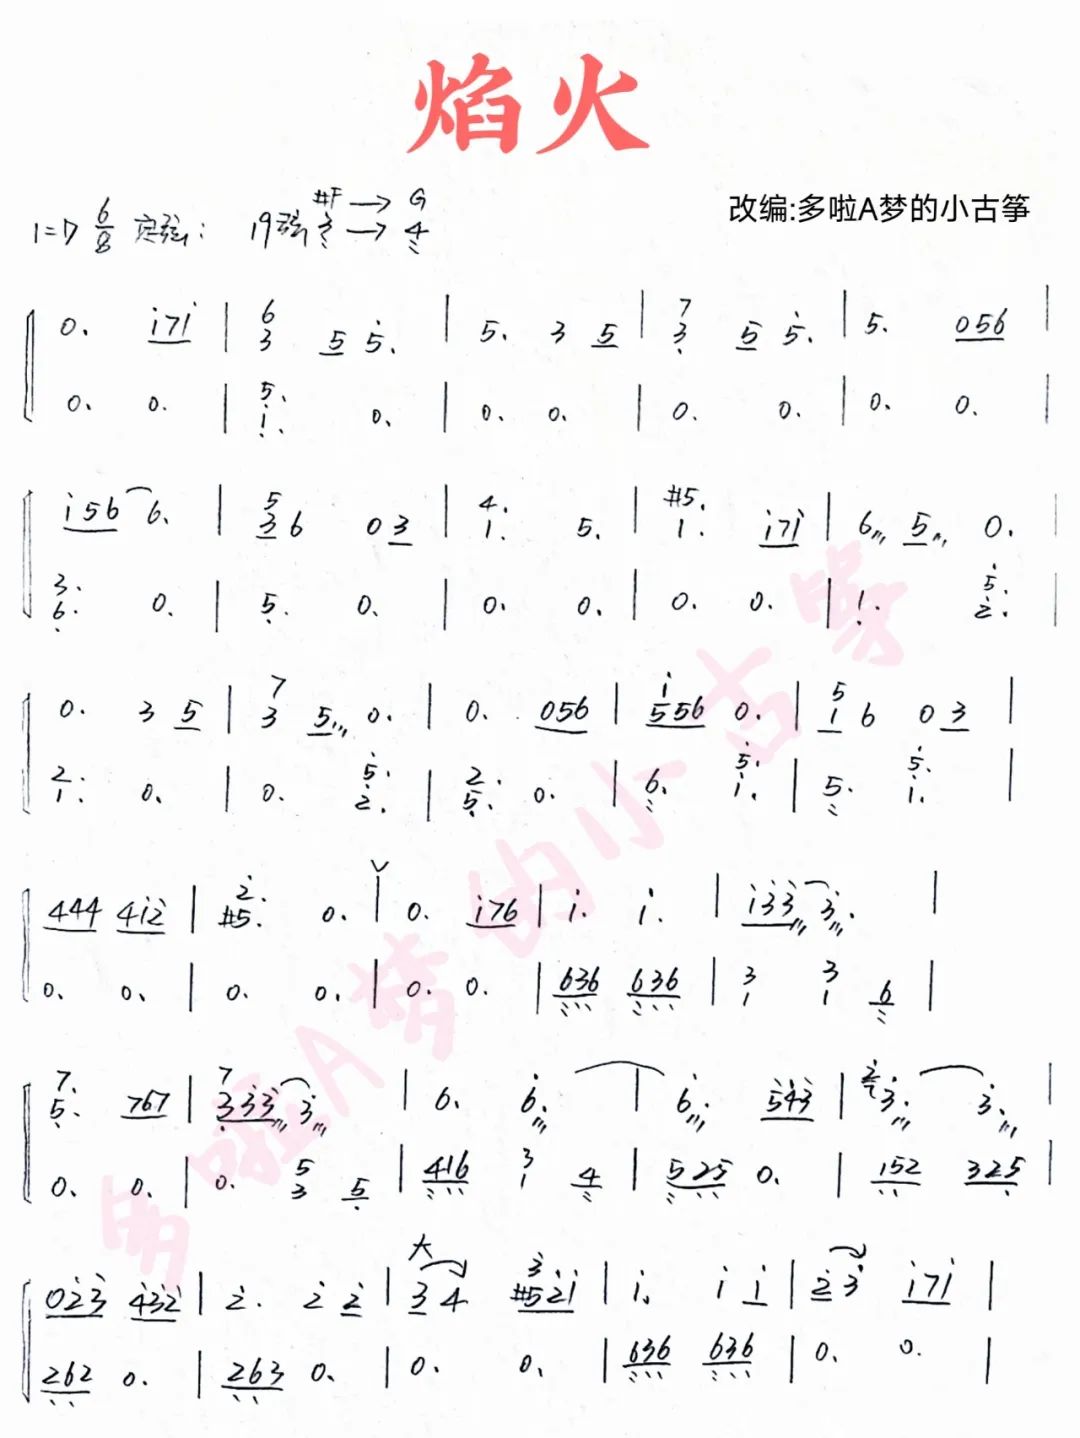 焰火
改编:多啦A梦的小古筝
#F → G
1=D 6/8 定弦: 19弦 3 → 4
0. i7i | 6 3 5 5. | 5. 3 5 | 7 3 5 5. | 5. 056 |
0. 0. | 5. 1. 0. | 0. 0. | 0. 0. | 0. 0. |
i56 6. | 5 3 6 03 | 4. 1. 5. | #5. 1. i7i | 6 5 0. |
3. 6. 0. | 5. 0. | 0. 0. | 0. 0. | 1. 5. 2. |
0. 3 5 | 7 3 5 0. | 0. 056 | i 556 0. | 5 1 6 03 |
2. 1. 0. | 0. 5. 2. | 2. 5. 0. | 6. 5. i. | 5. 5. i. |
444 4i2 | 2. #5. 0. | 0. i76 | i. i. | i33 3. |
0. 0. | 0. 0. | 0. 0. | 636 636 | 3 1 3 1 6 |
7. 5. 767 | 7 333 3. | 6. 6. | 6. 543 | 2 3. 3. |
0. 0. | 0. 5 3 5 | 416 3 1 4 | 525 0. | 152 325 |
大
023 432 | 2. 2 2 | 3 4 3. #52i | i. i i | 2 3 i7i |
262 0. | 263 0. | 0. 0. | 636 636 | 0. 0. |
多啦A梦的小古筝